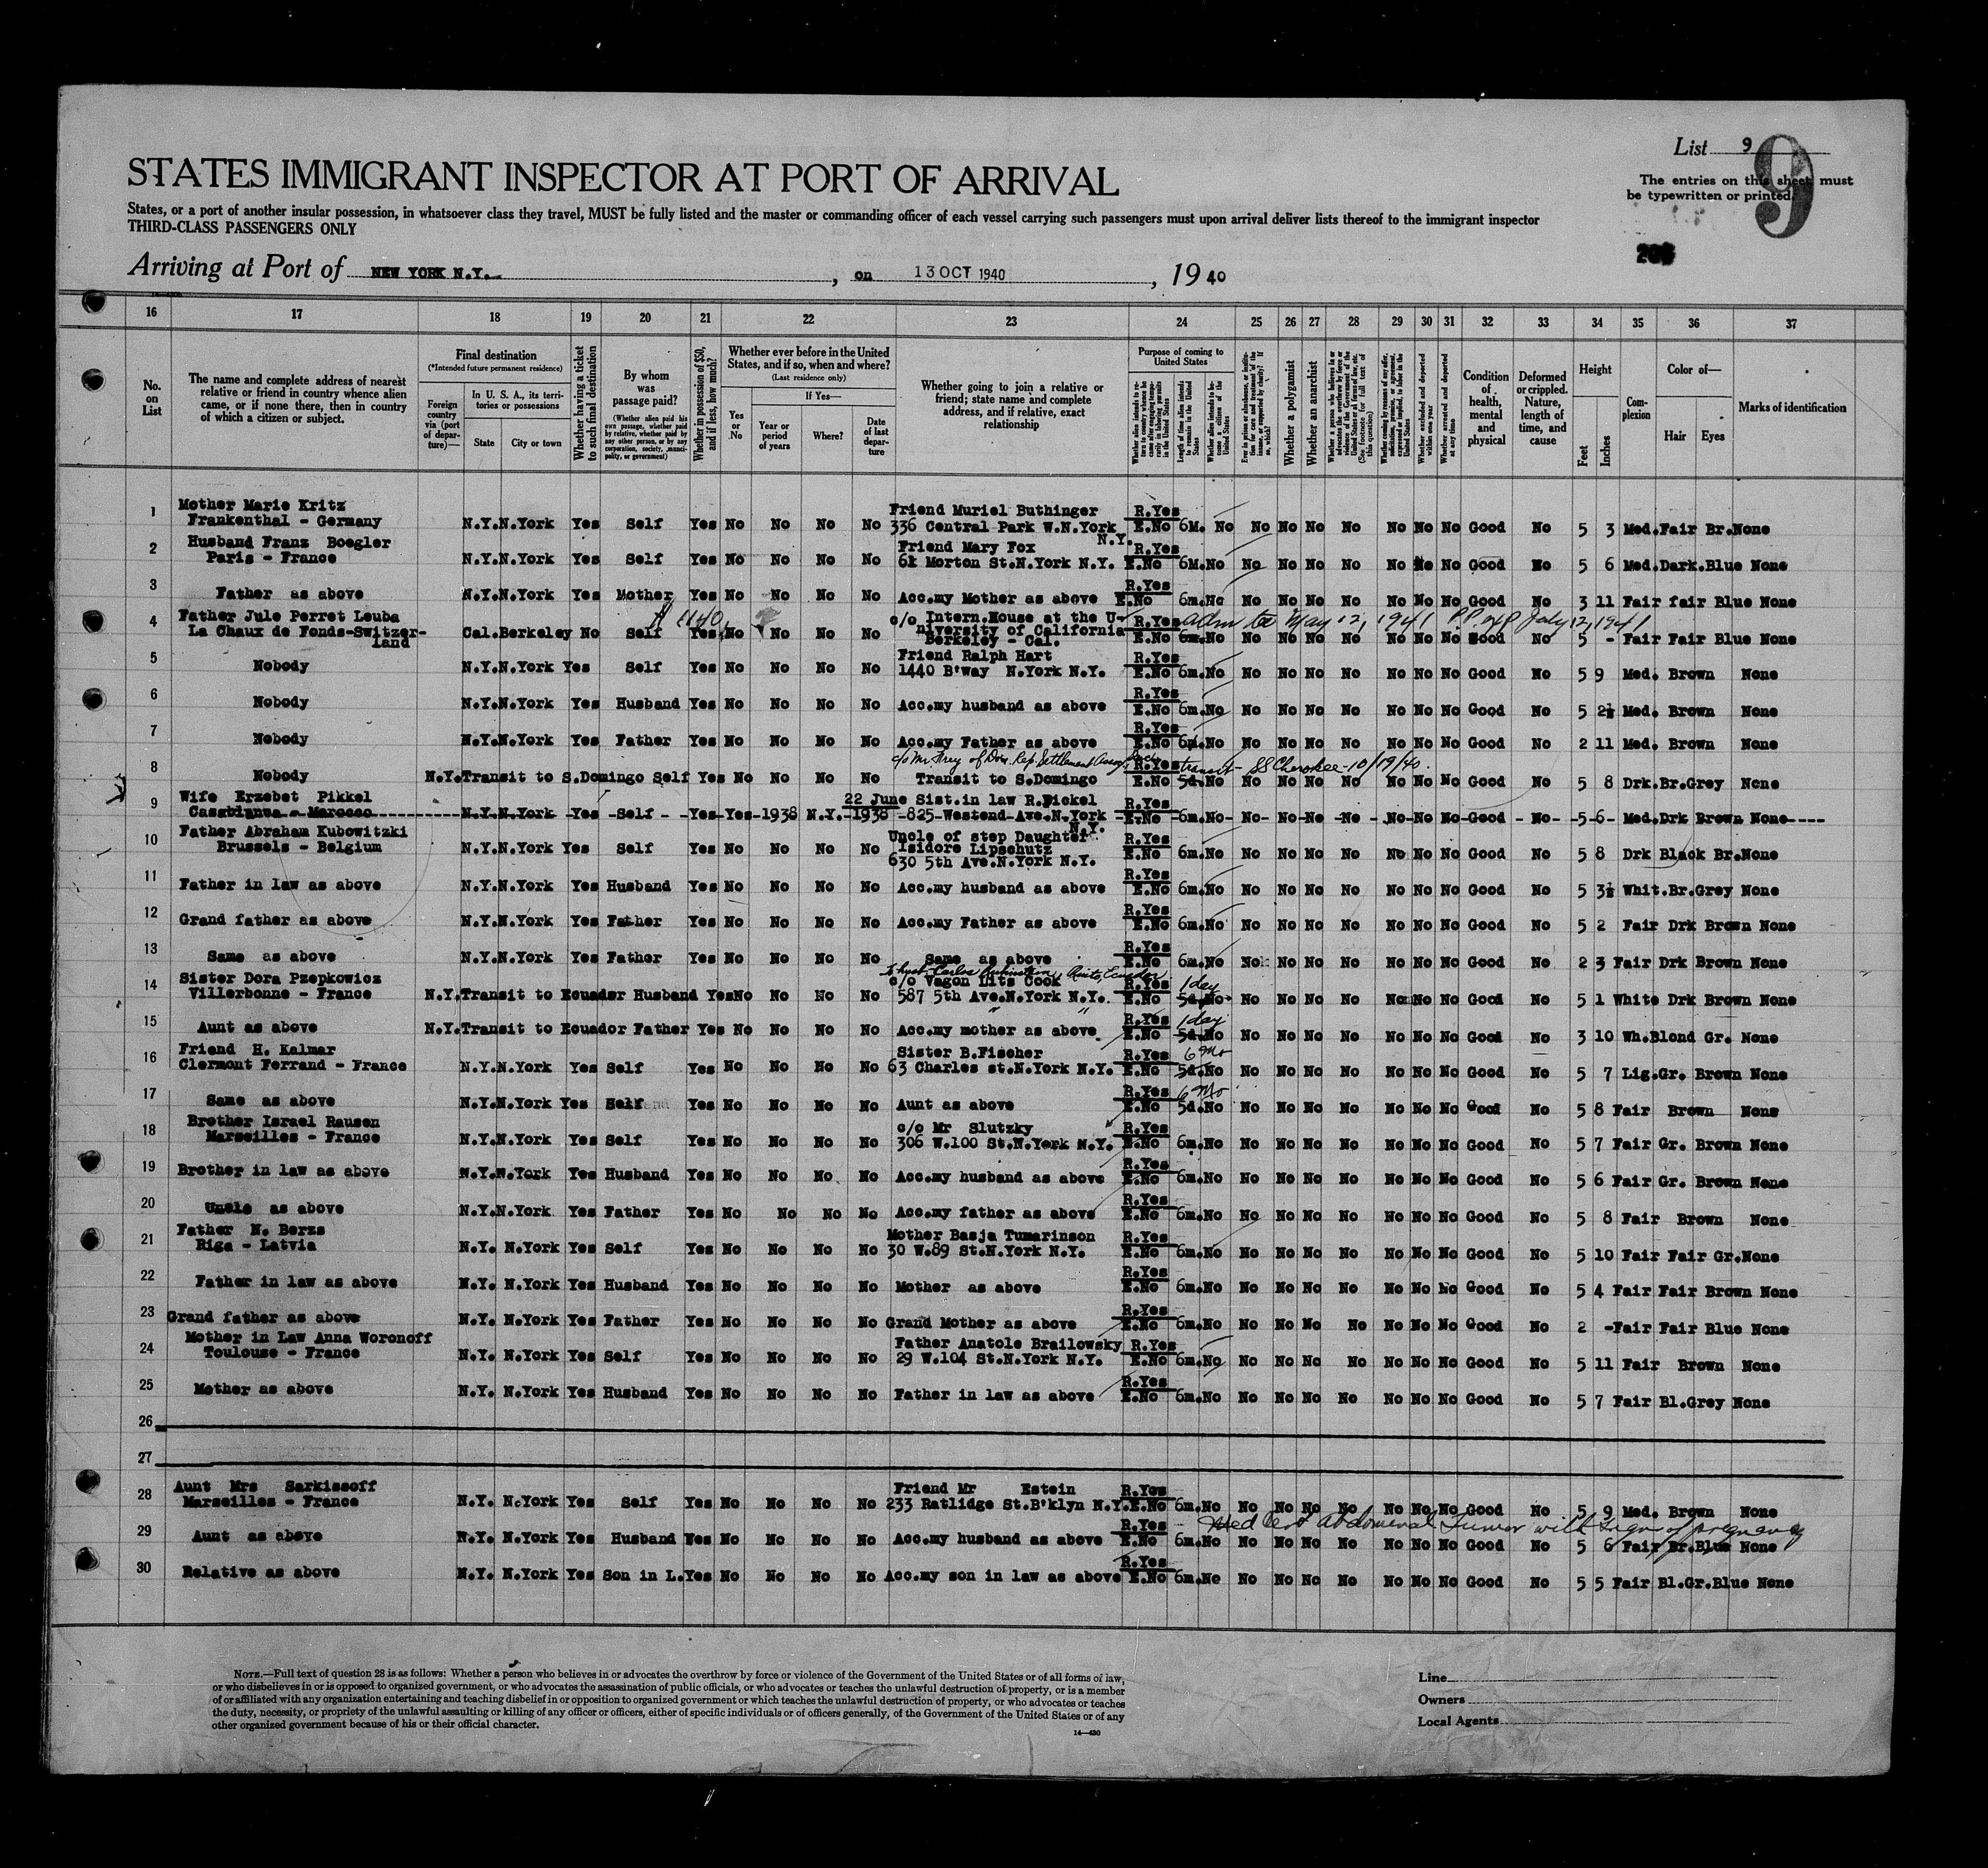 List 9
9
STATES IMMIGRANT INSPECTOR AT PORT OF ARRIVAL
The entries on this sheet must
be typewritten or printed.
States, or a port of another insular possession, in whatsoever class they travel, MUST be fully listed and the master or commanding officer of each vessel carrying such passengers must upon arrival deliver lists thereof to the immigrant inspector
THIRD-CLASS PASSENGERS ONLY
Arriving at Port of NEW YORK N.Y. , on 13 OCT 1940 , 19 40
16 17 18 19 20 21 22 23 24 25 26 27 28 29 30 31 32 33 34 35 36 37
No. on List
The name and complete address of nearest relative or friend in country whence alien came, or if none there, then in country of which a citizen or subject.
Final destination
(*Intended future permanent residence)
Foreign country via (port of departure)—
In U. S. A., its territories or possessions
State
City or town
Whether having a ticket to such final destination
By whom was passage paid?
(Whether alien paid his own passage, whether paid by relative, whether paid by any other person, or by any corporation, society, municipality, or government)
Whether in possession of $50, and if less, how much?
Whether ever before in the United States, and if so, when and where?
(Last residence only)
Yes or No
If Yes—
Year or period of years
Where?
Date of last departure
Whether going to join a relative or friend; state name and complete address, and if relative, exact relationship
Purpose of coming to United States
Length of time alien intends to remain in the United States
Whether alien intends to become a citizen of the United States
Whether a polygamist
Whether an anarchist
Whether excluded and deported within one year
Whether arrested and deported at any time
Condition of health, mental and physical
Deformed or crippled. Nature, length of time, and cause
Height
Feet
Inches
Complexion
Color of—
Hair
Eyes
Marks of identification
1 Mother Marie Kritz Friend Muriel Buthinger R.Yes
Frankenthal - Germany N.Y.N.York Yes Self Yes No No No No 336 Central Park W.N.York E.No 6M. No No No No No No No No Good No 5 3 Med.Fair Br.None
N.Y.
2 Husband Franz Boegler Friend Mary Fox R.Yes
Paris - France N.Y.N.York Yes Self Yes No No No No Morton St.N.York N.Y. E.No 6M.No No No No No No No No Good No 5 6 Med.Dark.Blue None
3 R.Yes
Father as above N.Y.N.York Yes Mother Yes No No No No Acc.my Mother as above E.No 6m.No No No No No No No No Good No 3 11 Fair fair Blue None
4 Father Jule Perret Leuba c/o Intern.House at the U- R.Yes adm to May 12, 1941 P.P. July 12, 1941
La Chaux de Fonds-Switzer- Cal.Berkeley No Self Yes No No No No niversity of California E.No 6m.No No No No No No No No Good No 5 - Fair Fair Blue None
land Berkeley - Cal.
5 Friend Ralph Hart R.Yes
Nobody N.Y.N.York Yes Self Yes No No No No 1440 B'way N.York N.Y. E.No 6m.No No No No No No No No Good No 5 9 Med. Brown None
6 R.Yes
Nobody N.Y.N.York Yes Husband Yes No No No No Acc.my husband as above E.No 6m.No No No No No No No No Good No 5 2½ Med. Brown None
7 R.Yes
Nobody N.Y.N.York Yes Father Yes No No No No Acc.my Father as above E.No No No No No No No No No Good No 2 11 Med. Brown None
8 c/o Mr. of Dom. Rep. Settlement Assoc. R.Yes transit - SS Cherokee - 10/19/40.
Nobody N.Y.Transit to S.Domingo Self Yes No No No No Transit to S.Domingo E.No 5d.No No No No No No No No Good No 5 8 Drk.Br.Grey None
9 Wife Erzebet Pikkel 22 June Sist.in law R.Pickel R.Yes
Casablanca - Marocco N.Y.N.York Yes Self Yes Yes 1938 N.Y. 1938 825 Westend Ave.N.York E.No 6m.No No No No No No No No Good No 5 6 Med.Drk Brown None
N.Y.
10 Father Abraham Kubowitzki Uncle of step Daughter R.Yes
Brussels - Belgium N.Y.N.York Yes Self Yes No No No No Isidore Lipschutz E.No 6m.No No No No No No No No Good No 5 8 Drk Black Br.None
630 5th Ave.N.York N.Y.
11 R.Yes
Father in law as above N.Y.N.York Yes Husband Yes No No No No Acc.my husband as above E.No 6m.No No No No No No No No Good No 5 3½ Whit.Br.Grey None
12 R.Yes
Grand father as above N.Y.N.York Yes Father Yes No No No No Acc.my Father as above E.No 6m.No No No No No No No No Good No 5 2 Fair Drk Brown None
13 R.Yes
Same as above N.Y.N.York Yes Father Yes No No No No Same as above E.No 6m.No No No No No No No No Good No 2 3 Fair Drk Brown None
14 Sister Dora Pzepkowicz husb Carlos Rubinstein, Quito, Ecuador c/o Vagon Lits Cook R.Yes 1 day
Villerbonne - France N.Y.Transit to Ecuador Husband Yes No No No No 587 5th Ave.N.York N.Y. E.No 5d.No No No No No No No No Good No 5 1 White Drk Brown None
15 R.Yes 1 day
Aunt as above N.Y.Transit to Ecuador Father Yes No No No No Acc.my mother as above E.No 5d.No No No No No No No No Good No 3 10 Wh.Blond Gr. None
16 Friend H. Kalmar Sister B.Fischer R.Yes 6 Mo
Clermont Ferrand - France N.Y.N.York Yes Self Yes No No No No 63 Charles st.N.York N.Y. E.No 5d.No No No No No No No No Good No 5 7 Lig.Gr. Brown None
17 R.Yes 6 Mo
Same as above N.Y.N.York Yes Self Yes No No No No Aunt as above E.No 5d.No No No No No No No No Good No 5 8 Fair Brown None
18 Brother Israel Rausen c/o Mr Slutzky R.Yes
Marseilles - France N.Y.N.York Yes Self Yes No No No No 306 W.100 St.N.York N.Y. E.No 6m.No No No No No No No No Good No 5 7 Fair Gr. Brown None
19 R.Yes
Brother in law as above N.Y.N.York Yes Husband Yes No No No No Acc.my husband as above E.No 6m.No No No No No No No No Good No 5 6 Fair Gr. Brown None
20 R.Yes
Uncle as above N.Y.N.York Yes Father Yes No No No No Acc.my father as above E.No 6m.No No No No No No No No Good No 5 8 Fair Brown None
21 Father N. Berzs Mother Basja Tumarinson R.Yes
Riga - Latvia N.Y. N.York Yes Self Yes No No No No 30 W.89 St.N.York N.Y. E.No 6m.No No No No No No No No Good No 5 10 Fair Fair Gr.None
22 R.Yes
Father in law as above N.Y. N.York Yes Husband Yes No No No No Mother as above E.No 6m.No No No No No No No No Good No 5 4 Fair Fair Brown None
23 R.Yes
Grand father as above N.Y. N.York Yes Father Yes No No No No Grand Mother as above E.No 6m.No No No No No No No No Good No 2 -Fair Fair Blue None
24 Mother in Law Anna Woronoff Father Anatole Brailowsky R.Yes
Toulouse - France N.Y. N.York Yes Self Yes No No No No 29 W.104 St.N.York N.Y. E.No 6m.No No No No No No No No Good No 5 11 Fair Brown None
25 R.Yes
Mother as above N.Y. N.York Yes Husband Yes No No No No Father in law as above E.No 6m.No No No No No No No No Good No 5 7 Fair Bl.Grey None
26
27
28 Aunt Mrs Sarkissoff Friend Mr Estein R.Yes
Marseilles - France N.Y. N.York Yes Self Yes No No No No 233 Ratlidge St.B'klyn N.Y.E.No 6m.No No No No No No No No Good No 5 9 Med. Brown None
29 R.Yes Med Cert Abdominal Tumor with signs of pregnancy
Aunt as above N.Y. N.York Yes Husband Yes No No No No Acc.my husband as above E.No 6m.No No No No No No No No Good No 5 6 Fair Br.Blue None
30 R.Yes
Relative as above N.Y. N.York Yes Son in L.Yes No No No No Acc.my son in law as above E.No 6m.No No No No No No No No Good No 5 5 Fair Bl.Gr.Blue None
NOTE.—Full text of question 28 is as follows: Whether a person who believes in or advocates the overthrow by force or violence of the Government of the United States or of all forms of law,
or who disbelieves in or is opposed to organized government, or who advocates the assassination of public officials, or who advocates or teaches the unlawful destruction of property, or is a member
of or affiliated with any organization entertaining and teaching disbelief in or opposition to organized government or which teaches the unlawful destruction of property, or who advocates or teaches
the duty, necessity, or propriety of the unlawful assaulting or killing of any officer or officers, either of specific individuals or of officers generally, of the Government of the United States or of any
other organized government because of his or their official character.
14—430
Line
Owners
Local Agents